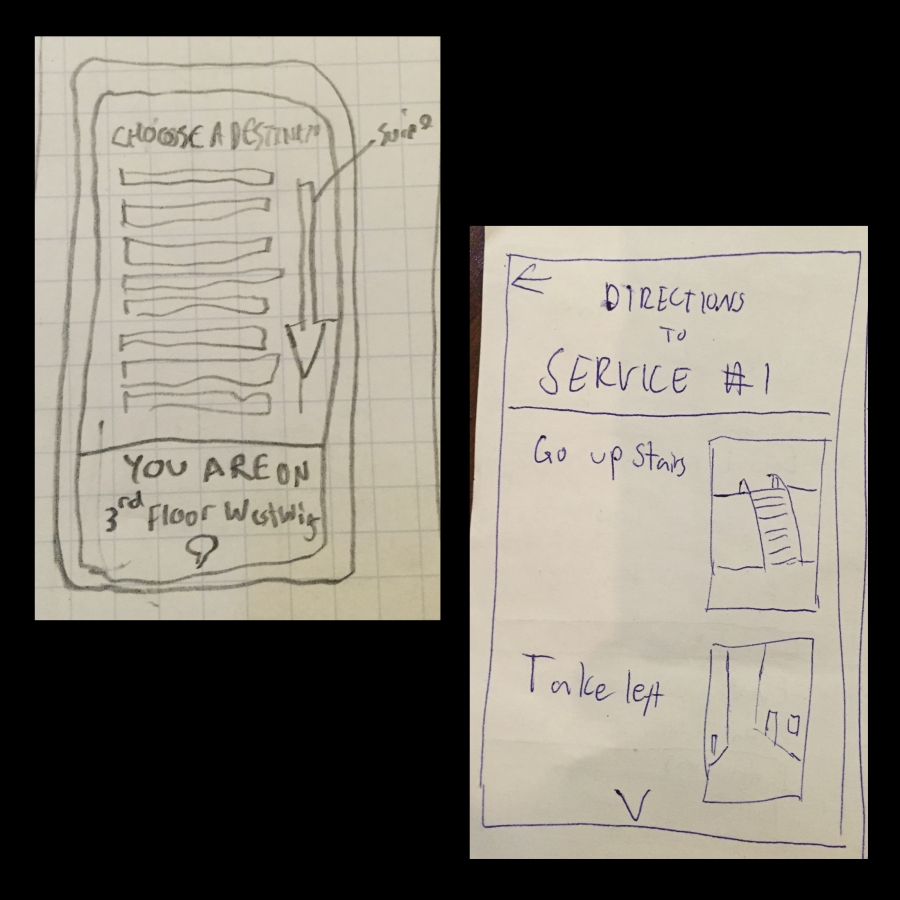 CHOOSE A
Swipe
YOU ARE ON
3rd Floor Westwig
DIRECTIONS
TO
SERVICE #1
Go up Stairs
Take left